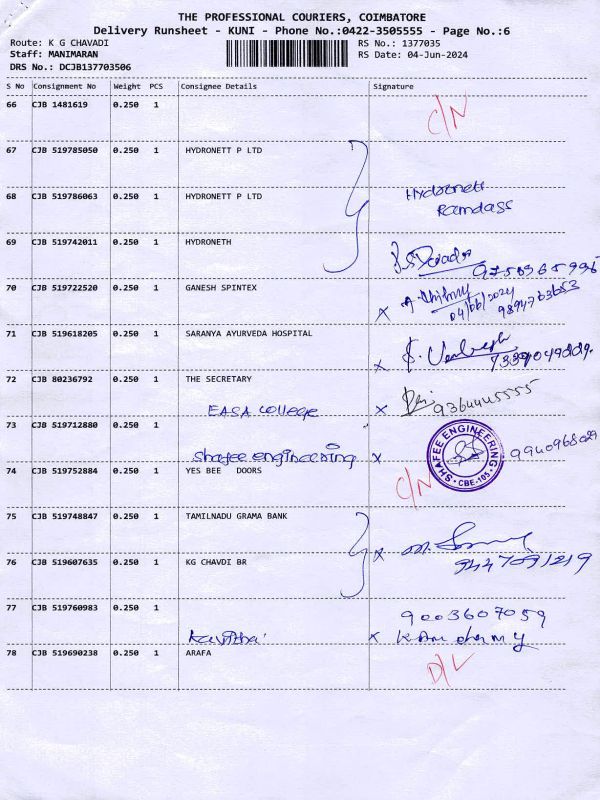 THE PROFESSIONAL COURIERS, COIMBATORE
Delivery Runsheet - KUNI - Phone No.:0422-3505555 - Page No.:6
Route: K G CHAVADI RS No.: 1377035
Staff: MANIMARAN RS Date: 04-Jun-2024
DRS No.: DCJB137703506
S No Consignment No Weight PCS Consignee Details Signature
66 CJB 1481619 0.250 1 C/N
67 CJB 519785050 0.250 1 HYDRONETT P LTD
68 CJB 519786063 0.250 1 HYDRONETT P LTD Hydronett
Ramdass
69 CJB 519742011 0.250 1 HYDRONETH
70 CJB 519722520 0.250 1 GANESH SPINTEX
04/06/2024
71 CJB 519618205 0.250 1 SARANYA AYURVEDA HOSPITAL
72 CJB 80236792 0.250 1 THE SECRETARY
EASA College x 9364445555
73 CJB 519712880 0.250 1
Shafee engineering x SHAFEE ENGINEERING CBE-105
74 CJB 519752884 0.250 1 YES BEE DOORS C/N
75 CJB 519748847 0.250 1 TAMILNADU GRAMA BANK
76 CJB 519607635 0.250 1 KG CHAVDI BR
77 CJB 519760983 0.250 1 9003607059
Kavitha x
78 CJB 519690238 0.250 1 ARAFA D/L